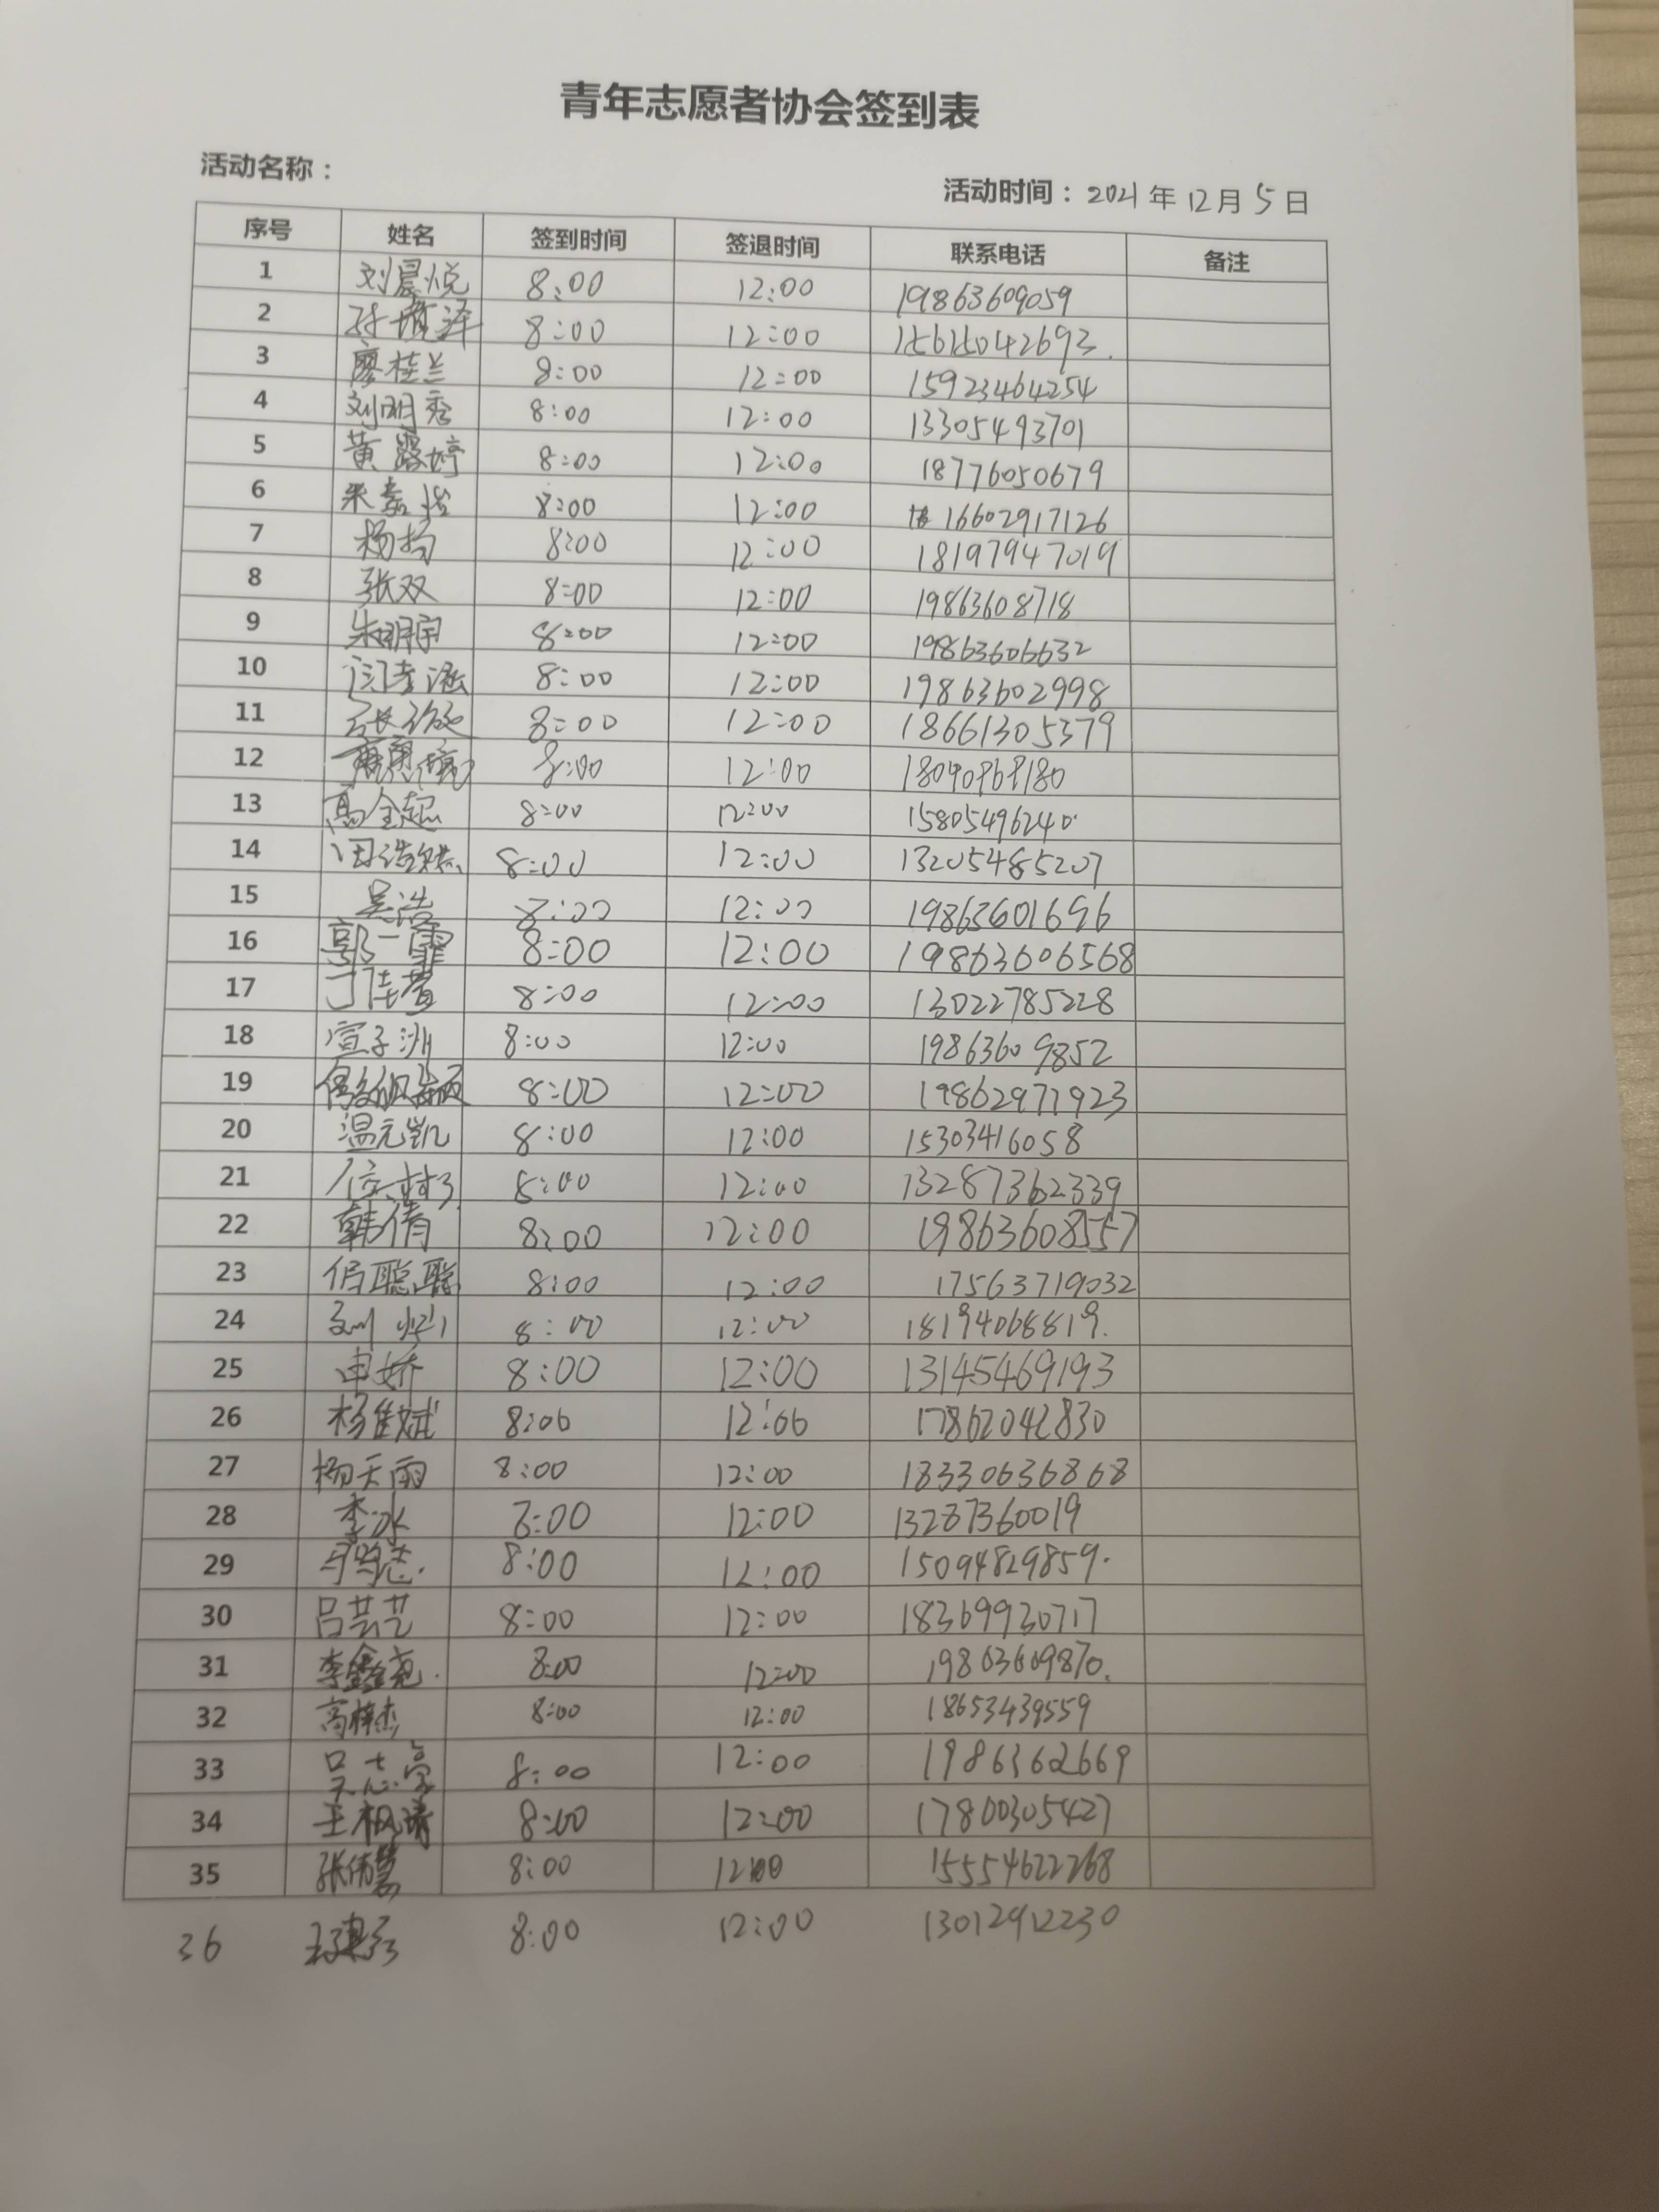 青年志愿者协会签到表
活动名称：
活动时间：2021年12月5日
序号 姓名 签到时间 签退时间 联系电话 备注
1 刘晨悦 8:00 12:00 19863609059
2 8:00 12:00 15615042693.
3 廖桂兰 8:00 12:00 15923464254
4 刘明秀 8:00 12:00 13305493701
5 黄露婷 8:00 12:00 18776050679
6 8:00 12:00 16602917126
7 杨扬 8:00 12:00 18197947019
8 张双 8:00 12:00 19863608718
9 朱明宇 8:00 12:00 19863606632
10 闫孝涵 8:00 12:00 19863602998
11 8:00 12:00 18661305379
12 8:00 12:00 18090868180
13 高全超 8:00 12:00 15805496240
14 田浩然 8:00 12:00 13205485207
15 吴浩 8:00 12:00 19863601696
16 郭一霏 8:00 12:00 19863606568
17 丁佳萱 8:00 12:00 13022785228
18 宣子洲 8:00 12:00 19863609852
19 8:00 12:00 19862977923
20 温元凯 8:00 12:00 15303416058
21 8:00 12:00 13287362339
22 韩倩 8:00 12:00 19863608557
23 侣聪聪 8:00 12:00 17563719032
24 8:00 12:00 18194068819.
25 申娇 8:00 12:00 13145469193
26 杨佳斌 8:00 12:00 17862042830
27 杨天雨 8:00 12:00 18330636868
28 李冰 8:00 12:00 13287360019
29 8:00 12:00 15094829859.
30 吕芸芝 8:00 12:00 18369930717
31 李鑫尧. 8:00 12:00 19863609870.
32 高梓杰 8:00 12:00 18653439559
33 吴志豪 8:00 12:00 1986362669
34 8:00 12:00 17800305427
35 8:00 12:00 15554622268
36 8:00 12:00 13012912230